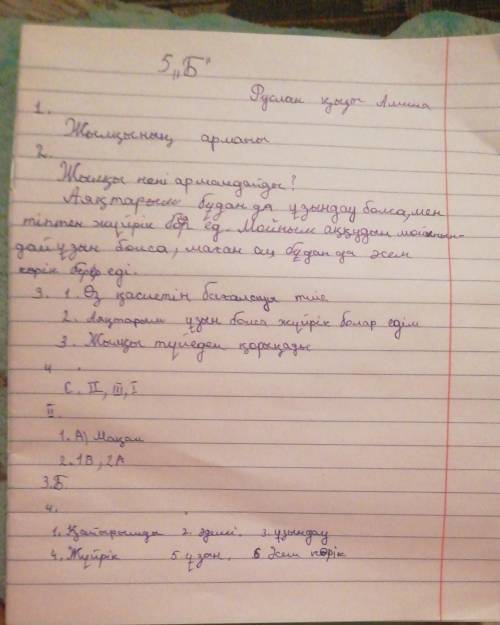 5 „Б"
Руслан қызы Алиша
1.
Жылқының арманы
2.
Жылқы нені армандайды?
Аяқтарым бұдан да ұзындау болса, мен
тіптен жүйрік ед. Мойным аққудың
дай ұзын болса, маған ащ бұдан да әсем
көрік берер еді.
3. 1. Өз қасиетін бағалауға
2. Аяқтарым ұзын болса жүйрік болар едім
3. Жылқы түйеден қорықады
4.
C. II, III, I
II.
1. А) Мақал
2. 1В, 2А
3. Б
4.
1. Қайырымды 2. әдемі. 3. ұзындау
4. Жүйрік 5. ұзын. 6 Әсем көрік